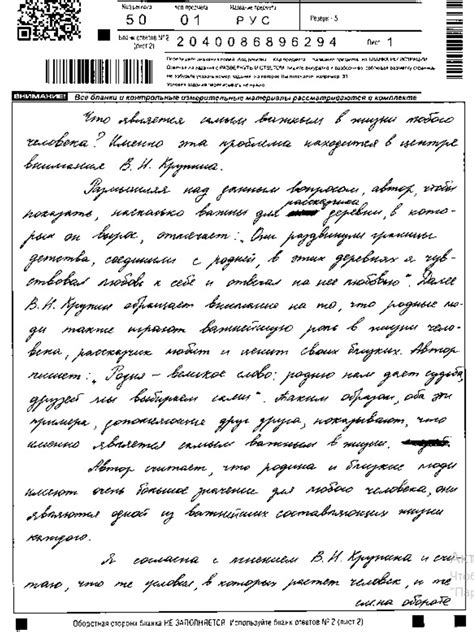 50 01 РУС Резерв - 5
Бланк ответов № 2
(лист 2) 2040086896294 Лист 1
ВНИМАНИЕ! Все бланки и контрольные измерительные материалы рассматриваются в комплекте
Что является самым важным в жизни любого
человека? Именно эта проблема находится в центре
внимания В. Н. Крупина.
Размышляя над данным вопросом, автор, чтобы
показать, насколько важны для рассказчика деревни, в кото-
рых он вырос, отмечает: „Они раздвинули границы
детства, соединили с родней, в этих деревнях я чув-
ствовал любовь к себе и отвечал на нее любовью". Далее
В. Н. Крупин обращает внимание на то, что родные лю-
ди также играют важнейшую роль в жизни чело-
века, рассказчик любит и ценит своих близких. Автор
пишет: „Родня - великое слово: родню нам дает судьба,
друзей мы выбираем сами". Таким образом, оба эти
примера, дополняющие друг друга, показывают, что
именно является самым важным в жизни.
Автор считает, что родина и близкие люди
имеют очень большое значение для любого человека, они
являются одной из важнейших составляющих жизни
каждого.
Я согласна с мнением В. Н. Крупина и счи-
таю, что те условия, в которых растет человек, и те
см. на обороте
Оборотная сторона бланка НЕ ЗАПОЛНЯЕТСЯ. Используйте бланк ответов № 2 (лист 2)